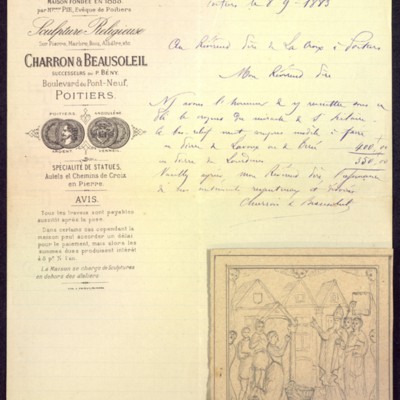 MAISON FONDÉE EN 1860
par Mgneur PIE, Evêque de Poitiers
Sculpture Religieuse
Sur Pierre, Marbre, Bois, Albâtre, etc
CHARRON & BEAUSOLEIL
SUCCESSEURS DU Fr BÉNY.
Boulevard du Pont-Neuf,
POITIERS.
POITIERS.
ARGENT
VERMEIL
SPÉCIALITÉ DE STATUES,
Autels et Chemins de Croix
en Pierre.
AVIS.
Tous les travaux sont payables
aussitôt après la pose.
Dans certains cas cependant la
maison peut accorder un délai
pour le paiement, mais alors les
sommes dues produisent intérêt
à 5 p% l'an.
La Maison se charge de Sculptures
en dehors des ateliers
Poitiers le 9 1883
Au Révérend Père de La Croix à Poitiers
Mon Révérend Père
avons l'honneur de vous remettre
le croquis du miracle de St Hilaire.
Le bas relief modèle à faire
en pierre de Lavoux ou de 400
en pierre de 350
Veuillez agréer mon Révérend Père l'assurance
de nos
Charron & Beausoleil